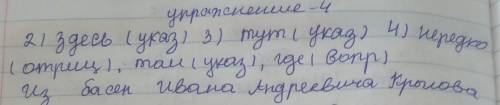 упражнение-4
2) Здесь (указ) 3) тут (указ) 4) нередко
(отриц), там (указ), где (вопр)
Из басен Ивана Андреевича Крылова